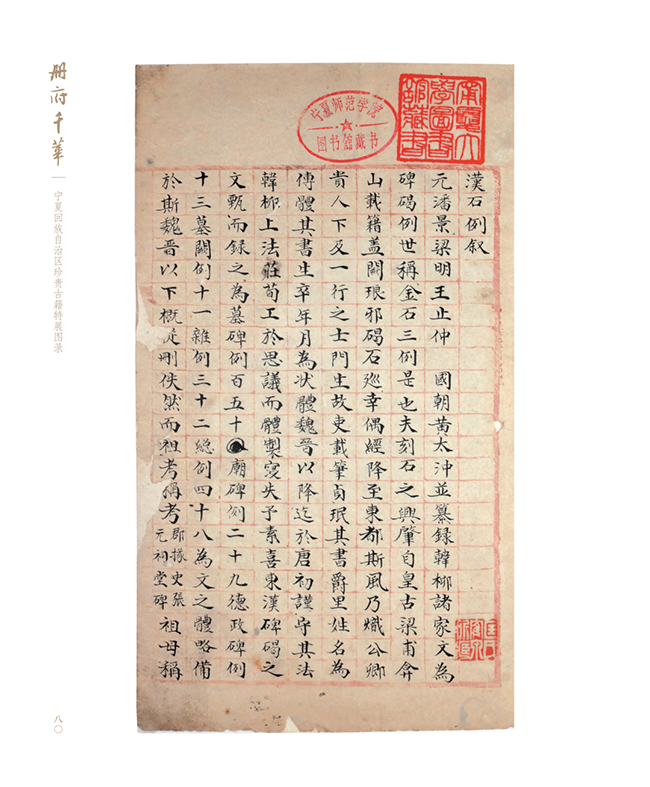 册府千華
宁夏回族自治区珍贵古籍特展图录
八〇
宁夏师范学院
图书馆藏书
甯夏大
學圖書
館藏書
漢石例叙
元潘景梁明王止仲 國朝黃太沖並纂録韓柳諸家文為
碑碣例世稱金石三例是也夫刻石之興肇自皇古梁甫弇
山載籍盖闕琅邪碣石廵幸偶經降至東都斯風乃熾公卿
貴人下及一行之士門生故吏載筆貞珉其書爵里姓名為
傳體其書生卒年月為状體魏晉以降迄於唐初謹守其法
韓柳上法莊荀工於思議而體製寖失予素喜東漢碑碣之
文甄而録之為墓碑例百五十廟碑例二十九德政碑例
十三墓闕例十一雜例三十二緫例四十八為文之體略備
於斯魏晉以下概從刪佚然而祖考稱考郡掾史張元祠堂碑祖母稱